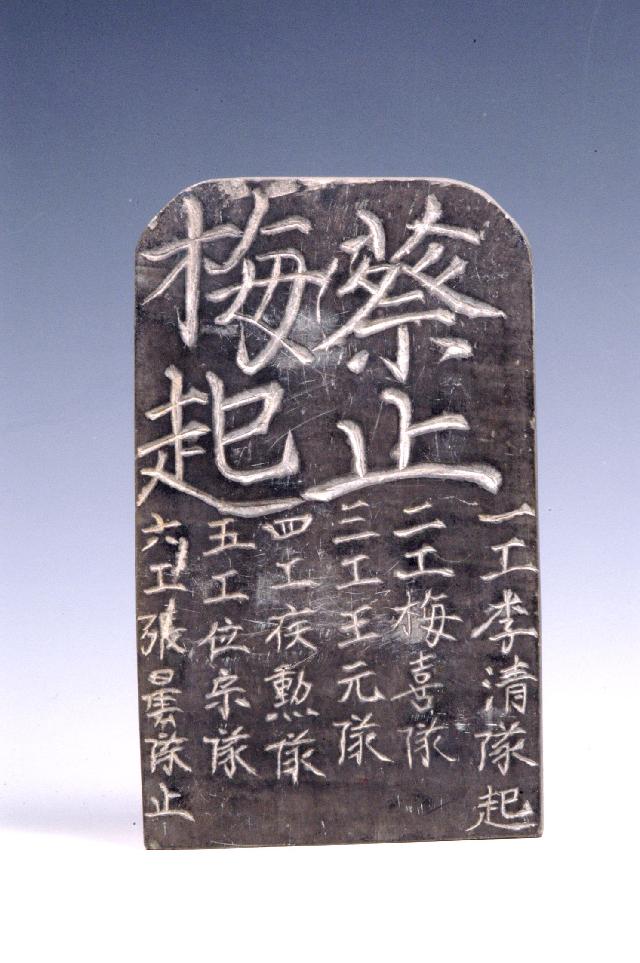 蔡止
梅起
一工李清隊起
二工梅喜隊
三工王元隊
四工疾勳隊
五工位宗隊
六工張曇隊止